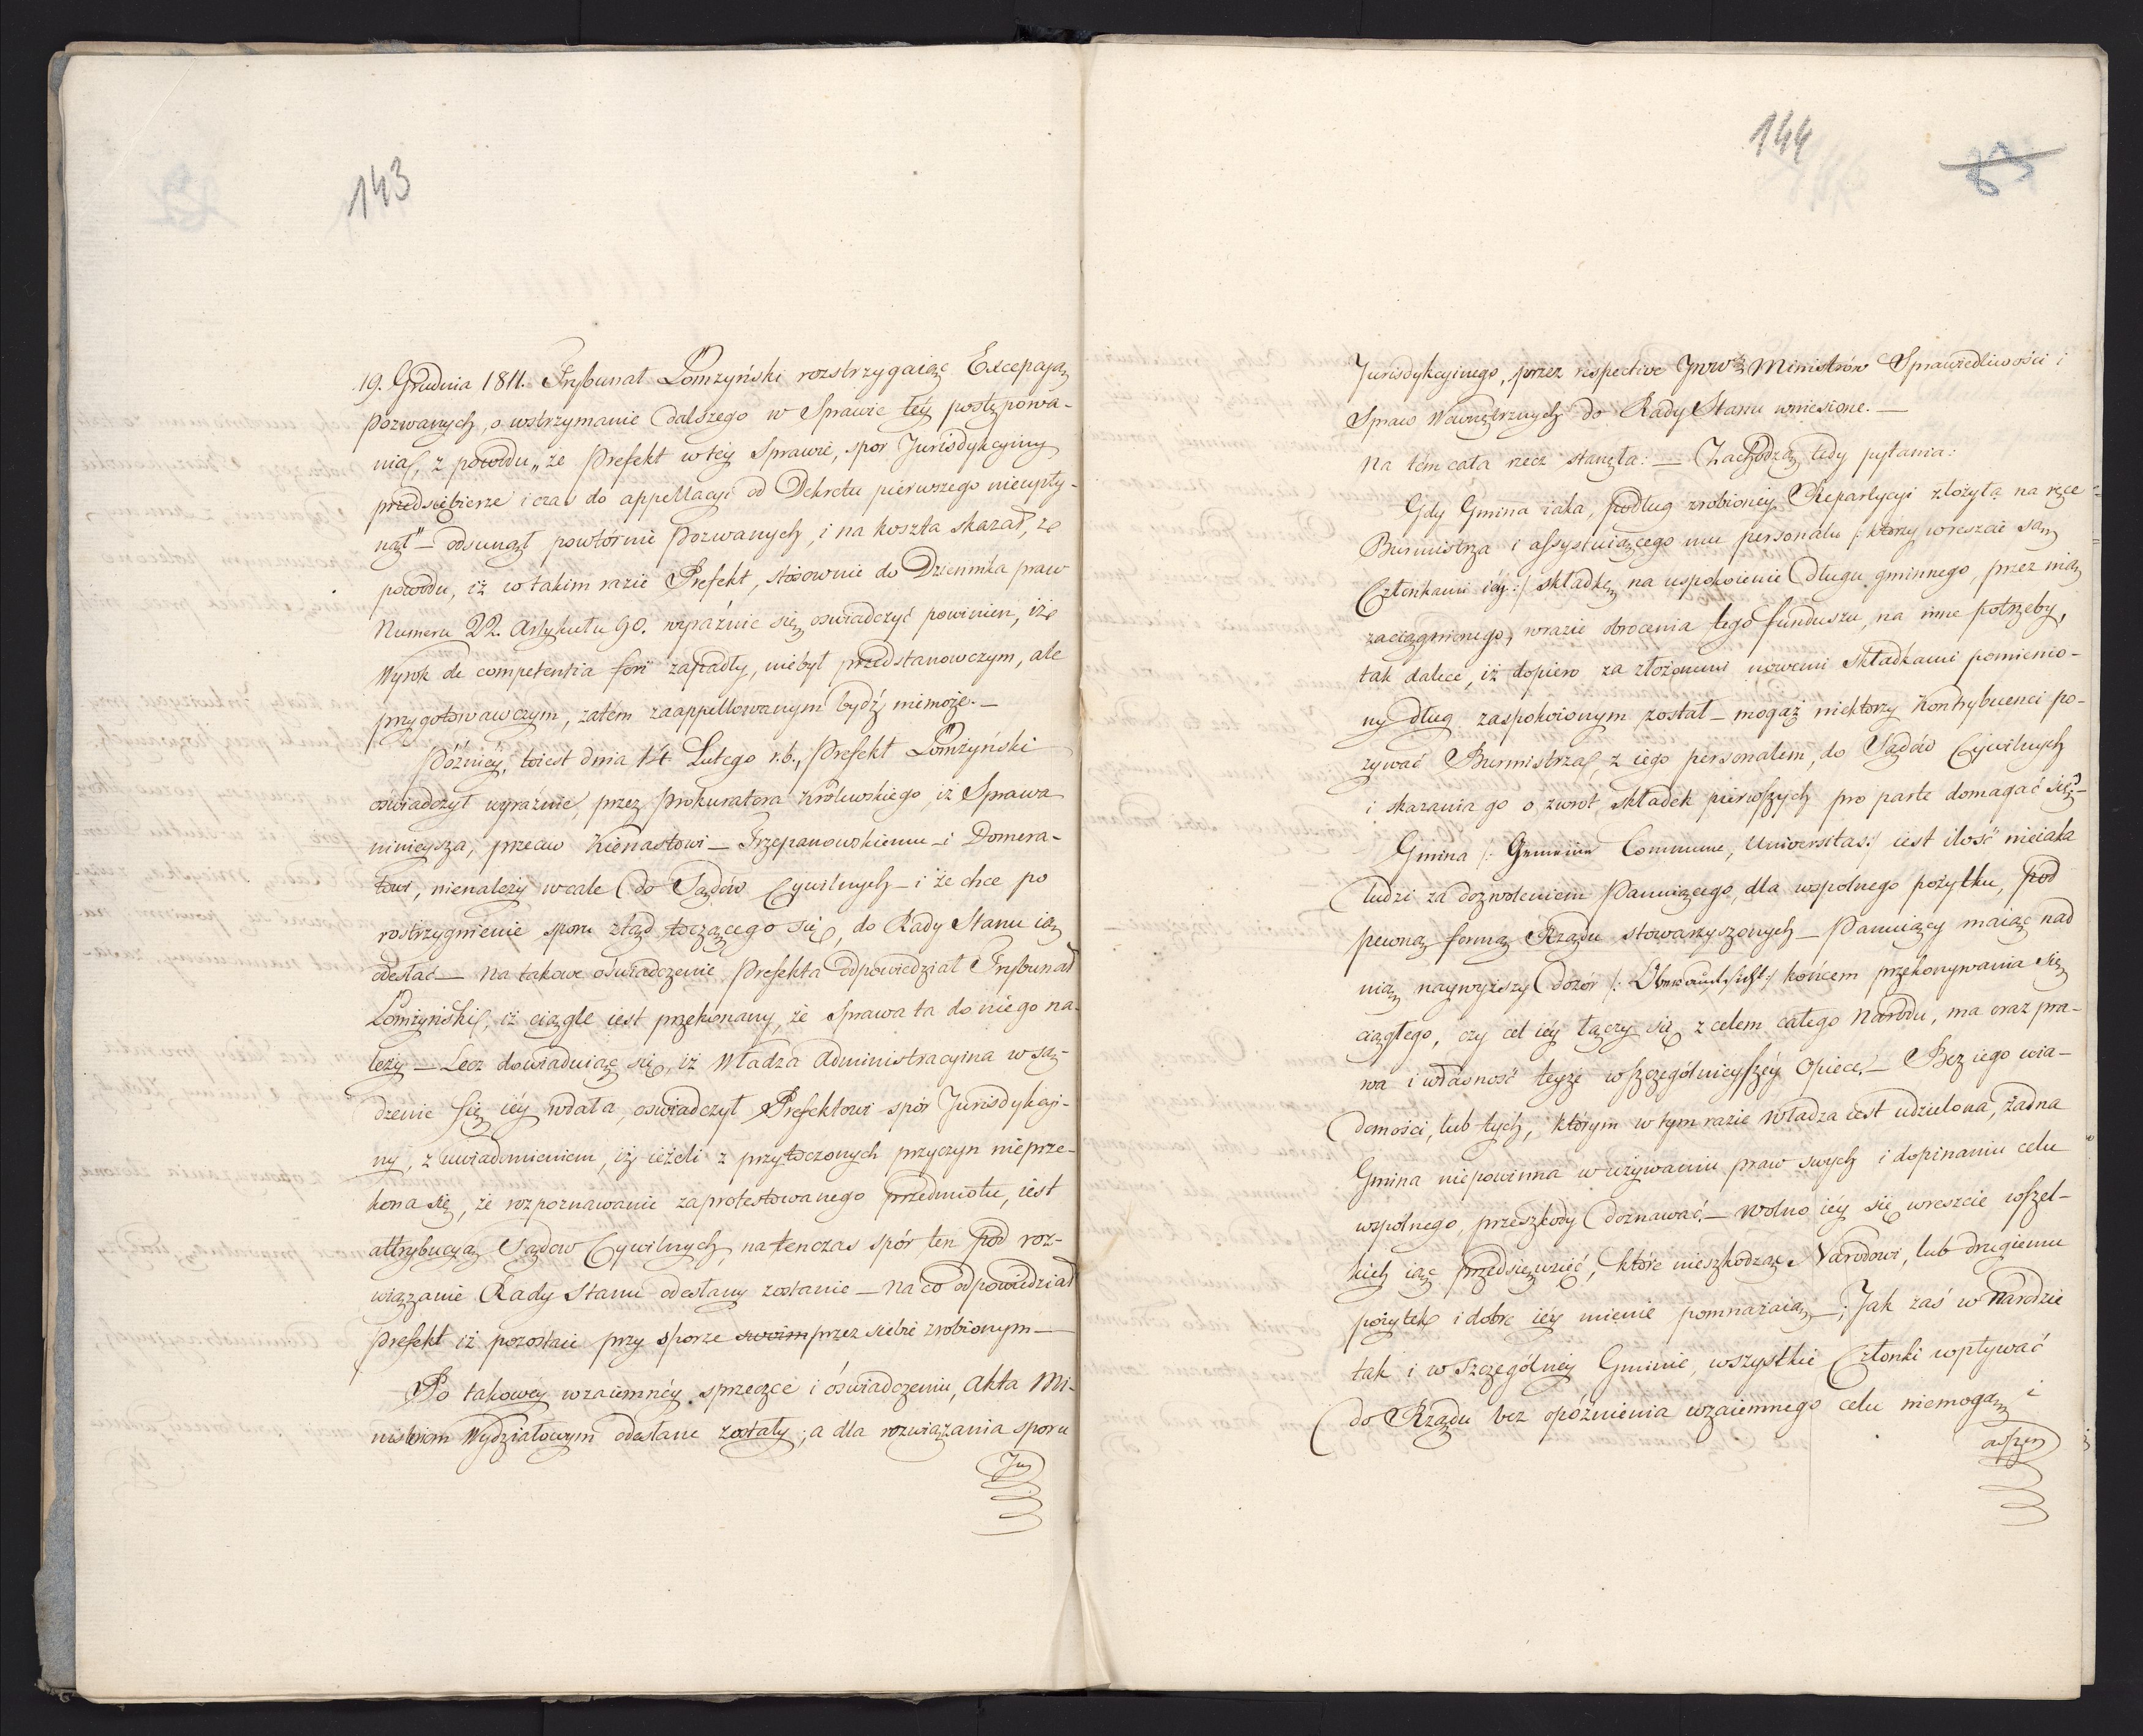 143
19. Grudnia 1811. Trybunał Łomżyński rozstrzygaiąc Excepcyą
Pozwanych, o wstrzymanie dalszego w Sprawie téy postępowa-
nia, z powodu „że Prefekt w téy Sprawie, spor Jurisdykcyiny
przedsiębierze i czas do appellacyi od Dekretu pierwszego nieupły-
nął" — odsunął powtórnie Pozwanych, i na koszta skazał, z
powodu, iż w takim razie Prefekt, stosownie do Dziennika praw
Numeru 22. Artykułu 90. wyraźnie się oswiadczyć powinien, iż
Wyrok de competentia fori zapadły, niebył przedstanowczym, ale
przygotowawczym, zatém zaappellowanym bydź niemoże. —
Późniéy, toiest dnia 14 Lutego r. b., Prefekt Łomżyński
oswiadczył wyraźnie, przez Prokuratora Królewskiego, iż Sprawa
ninieysza, przeciw Kienastowi — Trzepanowskiemu — i Domera-
towi, nienależy wcale do Sądów Cywilnych — i że chce po
rostrzygnienie sporu ztąd toczącego się, do Rady Stanu ią
odesłać — na takowe oświadczenie Prefekta odpowiedział Trybunał
Łomżyński, iż ciągle iest przekonany, że Sprawa ta do niego na-
leży — Lecz dowiaduiąc się, iż Władza Administracyina w są-
dzenie się iéy wdała, oswiadczył Prefektowi spór Jurisdykcyi-
ny, z uwiadomieniem, iż ieżeli z przytoczonych przyczyn nieprze-
kona się, że rozpoznawanie zaprotestowanego przedmiotu, iest
attrybucyą Sądow Cywilnych, natenczas spór ten pod roz-
wiązanie Rady Stanu odesłany zostanie — na co odpowiedział
Prefekt iż pozostaie przy sporze swoim przez siebie zrobionym —
Po takowéy wzaiemnéy sprzeczce i óswiadczeniu, Akta Mi-
nistrom Wydziałowym odesłane zostały; a dla rozwiązania sporu
Ju
144
83
Jurisdykcyinego, przez respective JWW. Ministrów Sprawiedliwości i
Spraw Wewnętrznych do Rady Stanu wniesione. —
Na tém cała rzecz stanęła: — Zachodzą tedy pytania:
Gdy Gmina iaka, podług zrobionéy Repartycyi złożyła na ręce
Burmistrza i assystuiącego mu personalu /: ktorzy wreszcie są
Członkami iéy :/ składkę na uspokoienie długu gminnego, przez nią
zaciągnionego, w razie obrocenia tego funduszu, na inne potrzeby,
tak dalece, iż dopiero za złożonemi nowemi składkami pomienio-
ny dług zaspokoionym został — mogąż niektorzy Kontrybuenci po-
zywać Burmistrza, z iego personalem, do Sądów Cywilnych
i skazania go o zwrot składek pierwszych pro parte domagać się? —
Gmina /: Gemeine Commune, Universitas :/ iest ilość nieiaka
ludzi za dozwoleniem Panuiącego, dla wspolnego pożytku, pod
pewną formą Rządu stowarzyszonych — Panuiący maiąc nad
nią naywyższy dozór /: :/ końcem przekonywania się
ciągłego, czy cel iéy łączy się z celem całego Narodu, ma oraz pra-
wa i własność teyże w szczególnieyszéy Opiece. — Bez iego wia-
domości, lub tych, którym w tym razie Władza iest udzielona, żadna
Gmina niepowinna w używaniu praw swych i dopinaniu celu
wspólnego, przeszkody doznawać. — Wolno iéy się wreszcie wszel-
kich iąć przedsięwzięć, które nieszkodząc Narodowi, lub drugiemu
pożytek i dobre iéy mienie pomnażaią —; Jak zaś w Narodzie
tak i w szczególnéy Gminie, wszystkie Członki wpływać
do Rządu bez opóźnienia wzaiemnego celu niemogą i